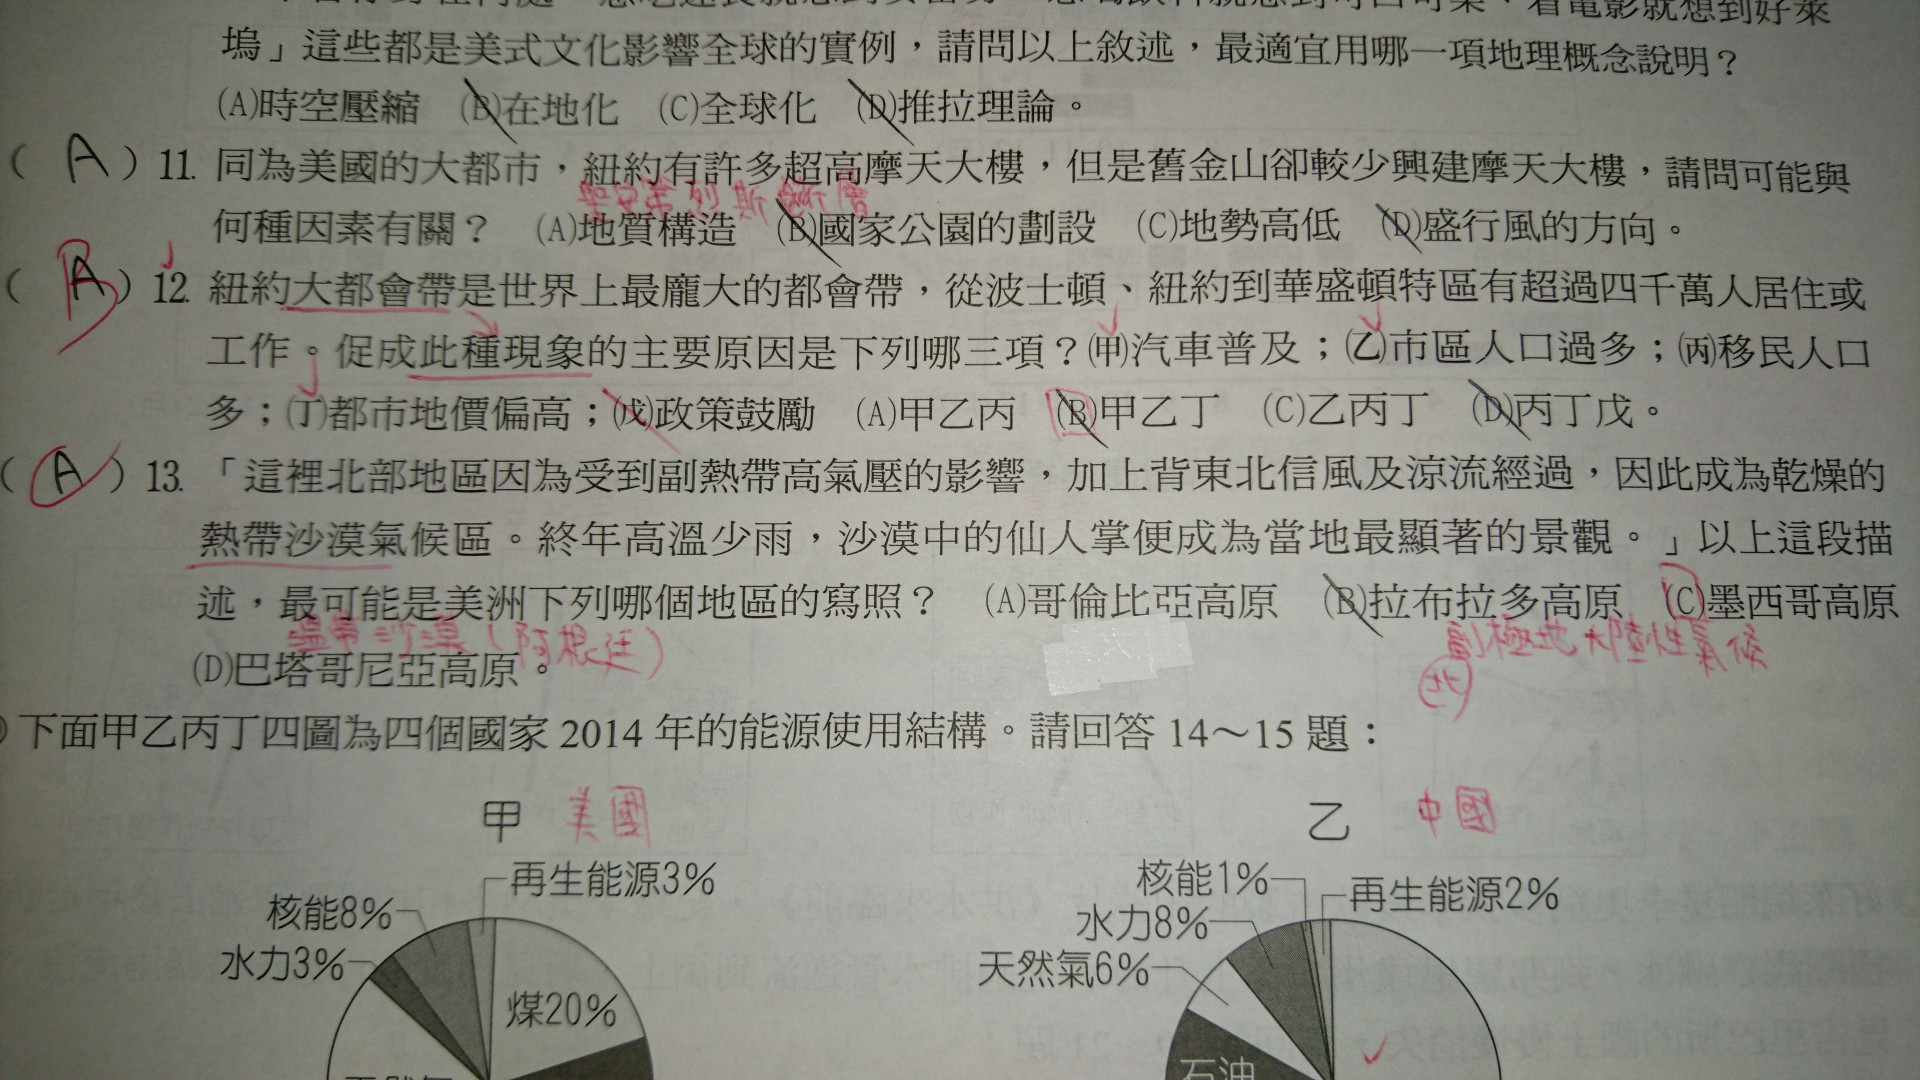 塢」這些都是美式文化影響全球的實例，請問以上敘述，最適宜用哪一項地理概念說明？
(A)時空壓縮 (B)在地化 (C)全球化 (D)推拉理論。
( A ) 11. 同為美國的大都市，紐約有許多超高摩天大樓，但是舊金山卻較少興建摩天大樓，請問可能與
聖安德列斯斷層
何種因素有關？ (A)地質構造 (B)國家公園的劃設 (C)地勢高低 (D)盛行風的方向。
( A B ) 12. 紐約大都會帶是世界上最龐大的都會帶，從波士頓、紐約到華盛頓特區有超過四千萬人居住或
工作。促成此種現象的主要原因是下列哪三項？(甲)汽車普及；(乙)市區人口過多；(丙)移民人口
多；(丁)都市地價偏高；(戊)政策鼓勵 (A)甲乙丙 (B)甲乙丁 (C)乙丙丁 (D)丙丁戊。
( A ) 13. 「這裡北部地區因為受到副熱帶高氣壓的影響，加上背東北信風及涼流經過，因此成為乾燥的
熱帶沙漠氣候區。終年高溫少雨，沙漠中的仙人掌便成為當地最顯著的景觀。」以上這段描
述，最可能是美洲下列哪個地區的寫照？ (A)哥倫比亞高原 (B)拉布拉多高原 (C)墨西哥高原
溫帶沙漠(阿根廷) 副極地大陸性氣候
(D)巴塔哥尼亞高原。 北
下面甲乙丙丁四圖為四個國家 2014 年的能源使用結構。請回答 14～15 題：
甲 美國 乙 中國
再生能源3% 核能1% 再生能源2%
核能8% 水力8%
水力3% 天然氣6%
煤20%
石油